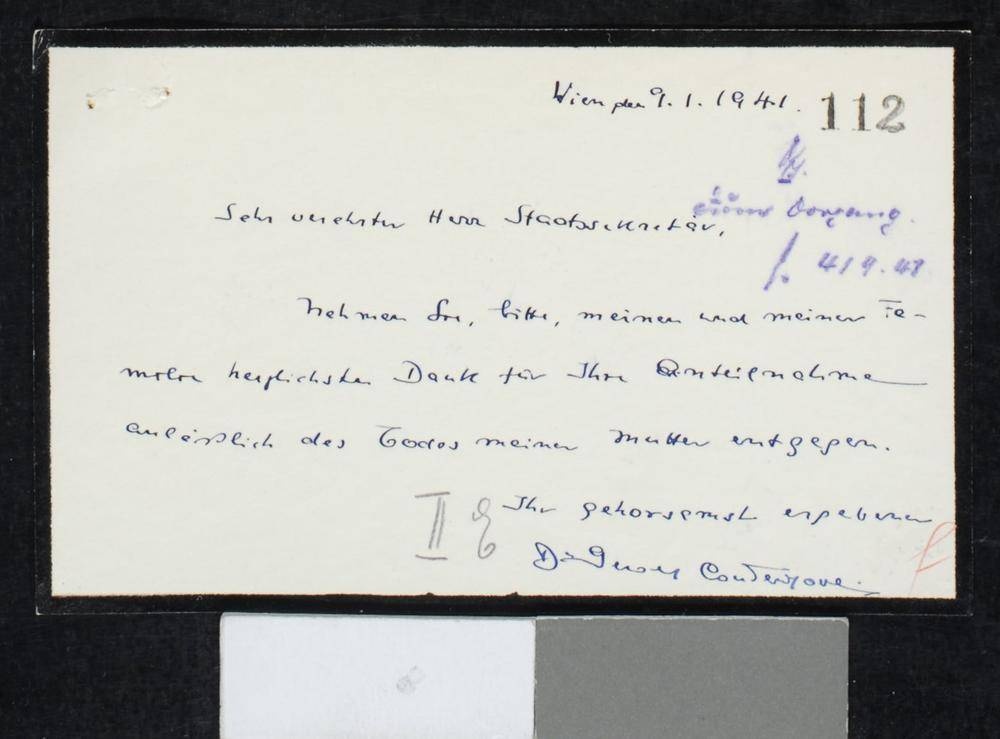 Wien den 9.1.1941.
112
Sehr verehrter Herr Staatssekretär,
zum Vorgang.
4/9.41
Nehmen Sie, bitte, meinen und meiner Fa-
milie herzlichsten Dank für Ihre Anteilnahme
anläßlich des Todes meiner Mutter entgegen.
Ihr gehorsamst ergebener
II
Dr